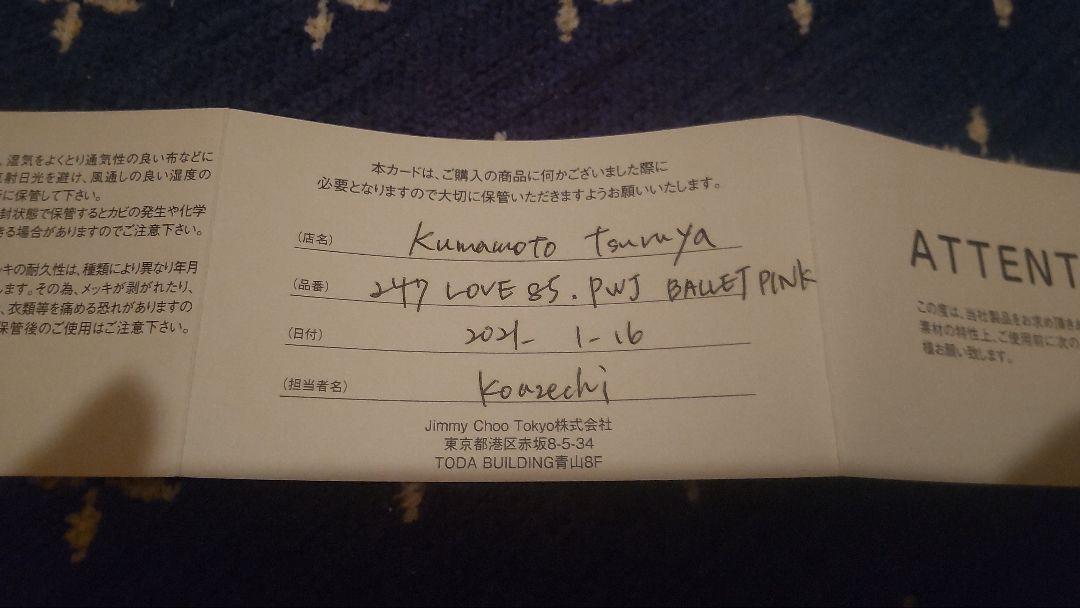 、湿気をよくとり通気性の良い布などに
射日光を避け、風通しの良い湿度の
に保管して下さい。
封状態で保管するとカビの発生や化学
る場合がありますのでご注意下さい。
ッキの耐久性は、種類により異なり年月
します。その為、メッキが剥がれたり、
、衣類等を痛める恐れがありますの
保管後のご使用はご注意下さい。
本カードは、ご購入の商品に何かございました際に
必要となりますので大切に保管いただきますようお願いいたします。
(店名) Kumamoto Tsuruya
(品番) 247 LOVE 85. PWJ BALLET PINK
(日付) 2021- 1-16
(担当者名) Koazechi
Jimmy Choo Tokyo株式会社
東京都港区赤坂8-5-34
TODA BUILDING青山8F
ATTENT
この度は、当社製品をお求め頂き
素材の特性上、ご使用前に次の
様お願い致します。